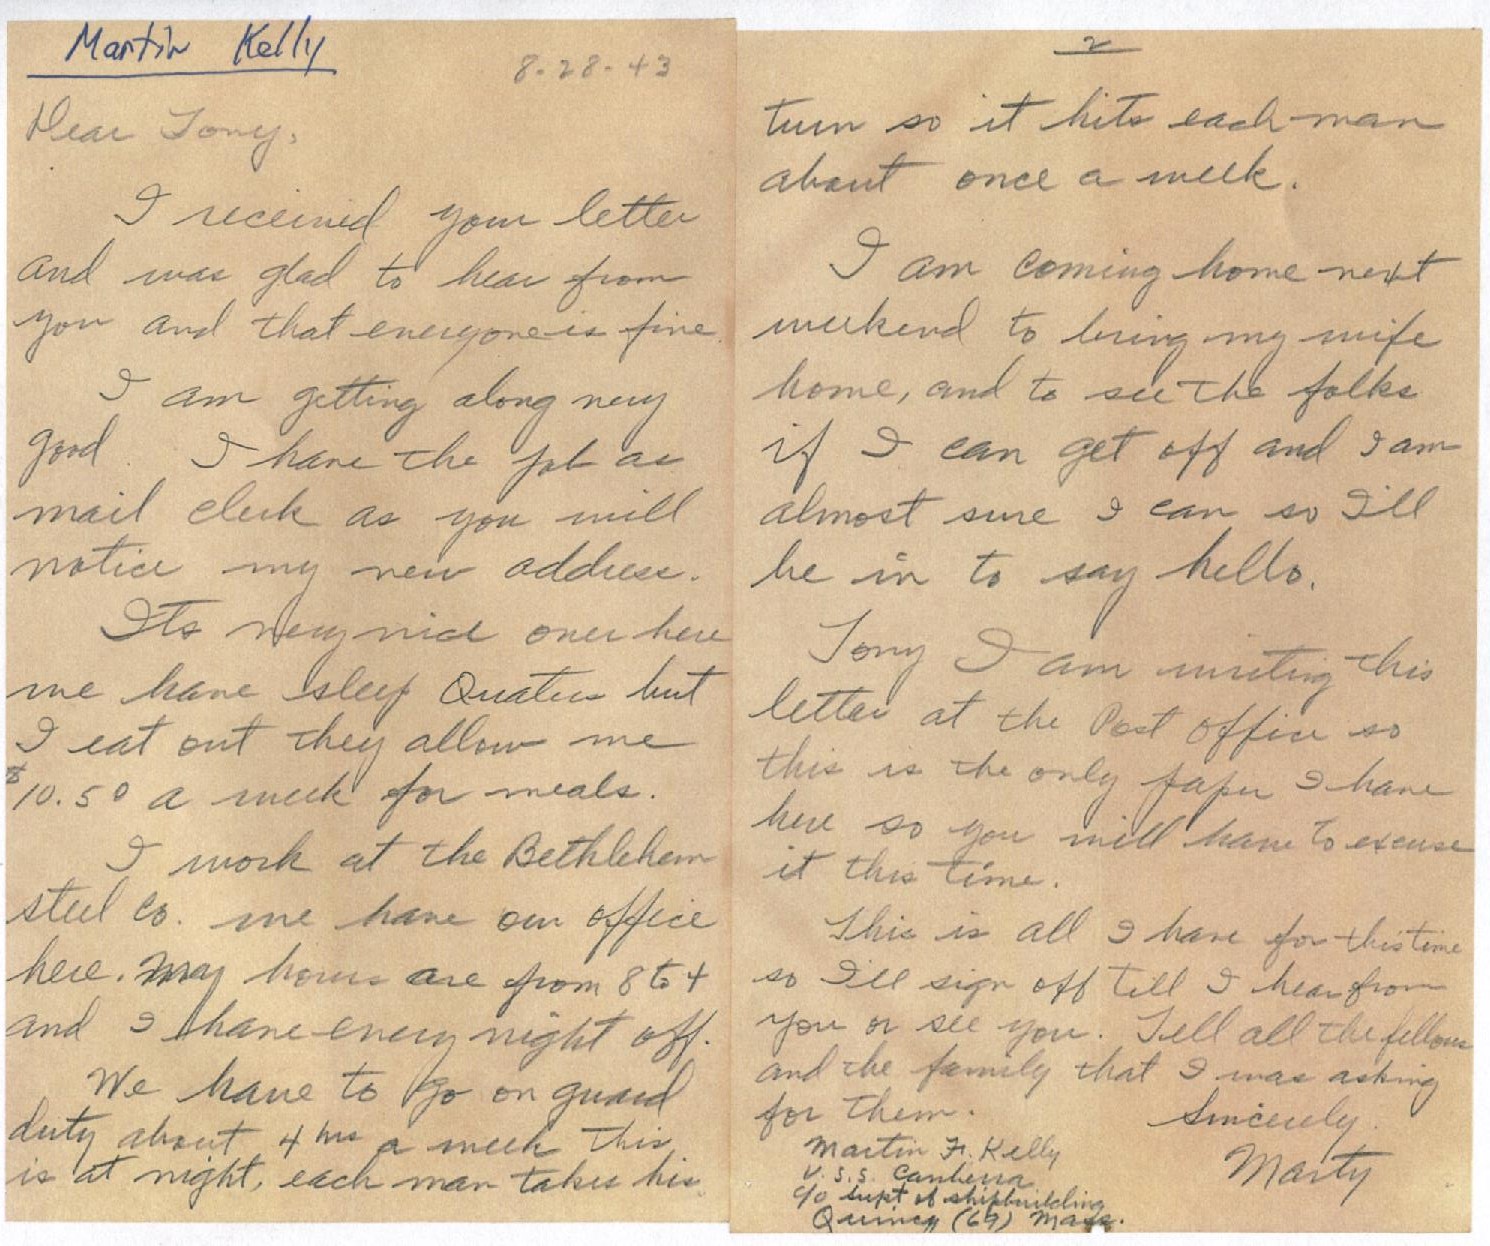 Martin Kelly
8-28-43
Dear Tony,
I received your letter
and was glad to hear from
you and that everyone is fine.
I am getting along very
good. I have the job as
mail clerk as you will
notice my new address.
Its very nice over here
we have sleep Quaters but
I eat out they allow me
$10.50 a week for meals.
I work at the Bethlehem
steel co. we have our office
here. May hours are from 8 to 4
and I have every night off.
We have to go on guard
duty about 4 hrs a week this
is at night, each man takes his
2
turn so it hits each man
about once a week.
I am coming home next
weekend to bring my wife
home, and to see the folks
if I can get off and I am
almost sure I can so I'll
be in to say hello.
Tony I am writing this
letter at the Post Office so
this is the only paper I have
here so you will have to excuse
it this time.
This is all I have for this time
so I'll sign off till I hear from
you or see you. Tell all the fellows
and the family that I was asking
for them.
Sincerely.
Marty
Martin F. Kelly
U.S.S. Canberra
c/o Supt of shipbuilding
Quincy (69) Mass.